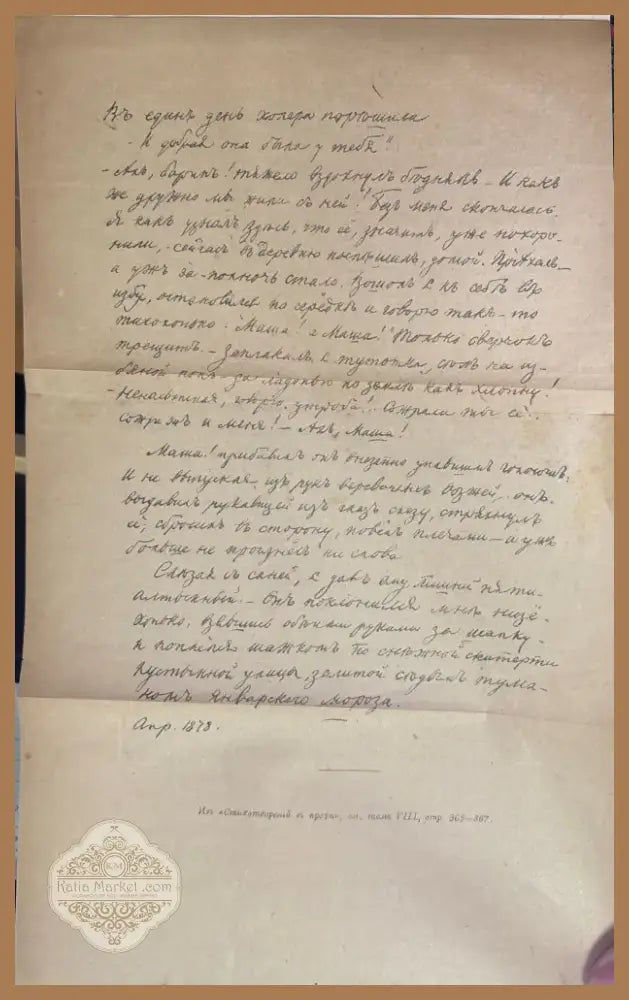 Въ одинъ день холера порѣшила
- И добрая она была у тебя?
- Ахъ, баринъ! тяжело вздохнулъ бѣднякъ - И какъ
же дружно мы жили съ ней! Безъ меня скончалась.
Я какъ узналъ здѣсь, что её, значитъ, уже похоро-
нили, - сейчасъ въ деревню поспѣшилъ, домой. Пріѣхалъ -
а ужъ за-полночь стало. Вошолъ я къ себѣ въ
избу, остановился по серёдкѣ и говорю такъ-то
тихохонько: "Маша! а Маша!" Только сверчокъ
трещитъ. - Заплакалъ я тутотка, сѣлъ на из-
бяной полъ - да ладонью по землѣ какъ хлопну!
- Ненасытная, говорю, утроба!.. Сожрала ты её...
сожри жъ и меня! - Ахъ, Маша!
Маша! прибавилъ онъ внезапно упавшимъ голосомъ.
И не выпуская изъ рукъ веревочныхъ возжей, онъ
выдавилъ рукавицей изъ глазъ слезу, стряхнулъ
её, сбросилъ въ сторону, повёлъ плечами - и ужъ
больше не произнёсъ ни слова
Слѣзая съ саней, я далъ ему лишній пяти-
алтынный - Онъ поклонился мнѣ низё-
хонько, взявшись обѣими руками за шапку -
и поплёлся шажкомъ по снѣжной скатерти
пустынной улицы, залитой сѣдымъ тума-
номъ январскаго мороза.
Апр. 1878.
Изъ «Стихотвореній въ прозѣ», см. томъ VIII, стр. 365—367.
KM
Katia Market .com